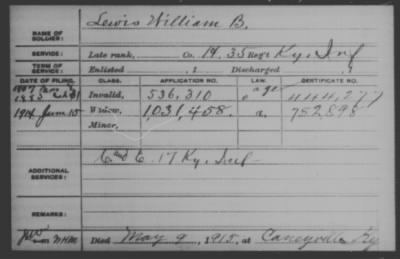 Lewis William B.
NAME OF SOLDIER:
SERVICE: Late rank, Co. H, 35 Reg't Ky. Inf
TERM OF SERVICE: Enlisted , 1 Discharged , 1
DATE OF FILING. CLASS. APPLICATION NO. LAW. CERTIFICATE NO.
1907
age
1885 Invalid, 536,310 444,277
1914 June 15 Widow, 1,031,458. 782,898
Minor,
and C. 17 Ky. Inf
ADDITIONAL SERVICES:
REMARKS:
Died May 9, 1915, at Caneyville Ky